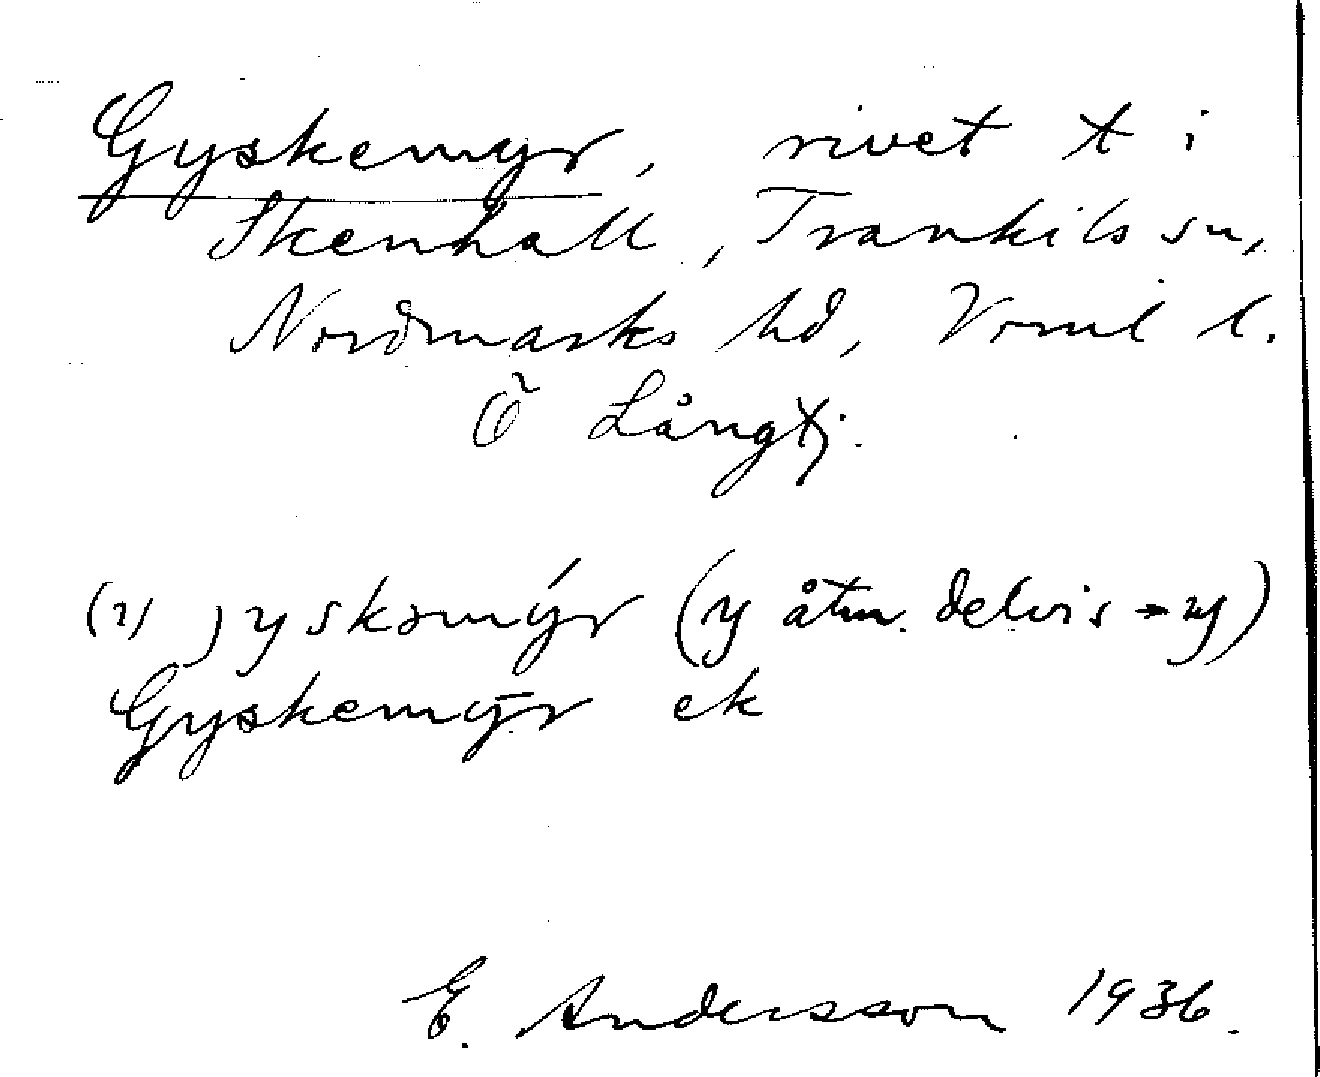 Gyskemyr, rivet t i
Skenhall, Trankils sn,
Nordmarks hd, Vrml l.
Ö Långtj.
(1) jyskəmýr (y åtm. delvis → y)
Gyskemȳr ek
E. Andersson 1936.